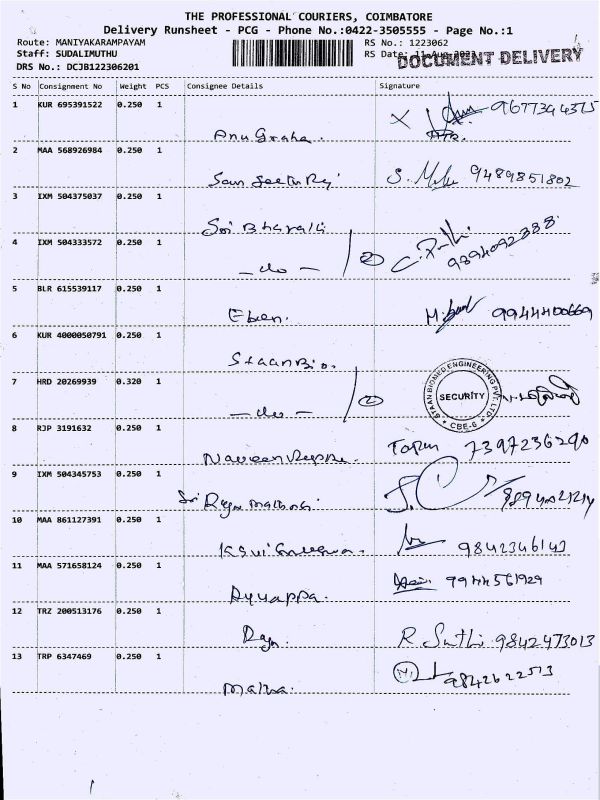 THE PROFESSIONAL COURIERS, COIMBATORE
Delivery Runsheet - PCG - Phone No.:0422-3505555 - Page No.:1
Route: MANIYAKARAMPAYAM RS No.: 1223062
Staff: SUDALIMUTHU RS Date: 11-Aug-2023
DOCUMENT DELIVERY
DRS No.: DCJB122306201
S No Consignment No Weight PCS Consignee Details Signature
1 KUR 695391522 0.250 1
Anu Graha. 9677344375
2 MAA 568926984 0.250 1
9489851802
3 IXM 504375037 0.250 1
Sri Bharathi
4 IXM 504333572 0.250 1
- do - 2 9894092888
5 BLR 615539117 0.250 1
Eben. 9944400669
6 KUR 4000050791 0.250 1
Staan Bio.
7 HRD 20269939 0.320 1
- do - 2
STAAN BIOMED ENGINEERING PVT. LTD. SECURITY CBE-6
8 RJP 3191632 0.250 1
Naveen 7397236290
9 IXM 504345753 0.250 1
Sri Raja
10 MAA 861127391 0.250 1
9842346143
11 MAA 571658124 0.250 1
Ayyappa. 9944561929
12 TRZ 200513176 0.250 1
Raja. R. Sathi 9842473013
13 TRP 6347469 0.250 1
9842622513